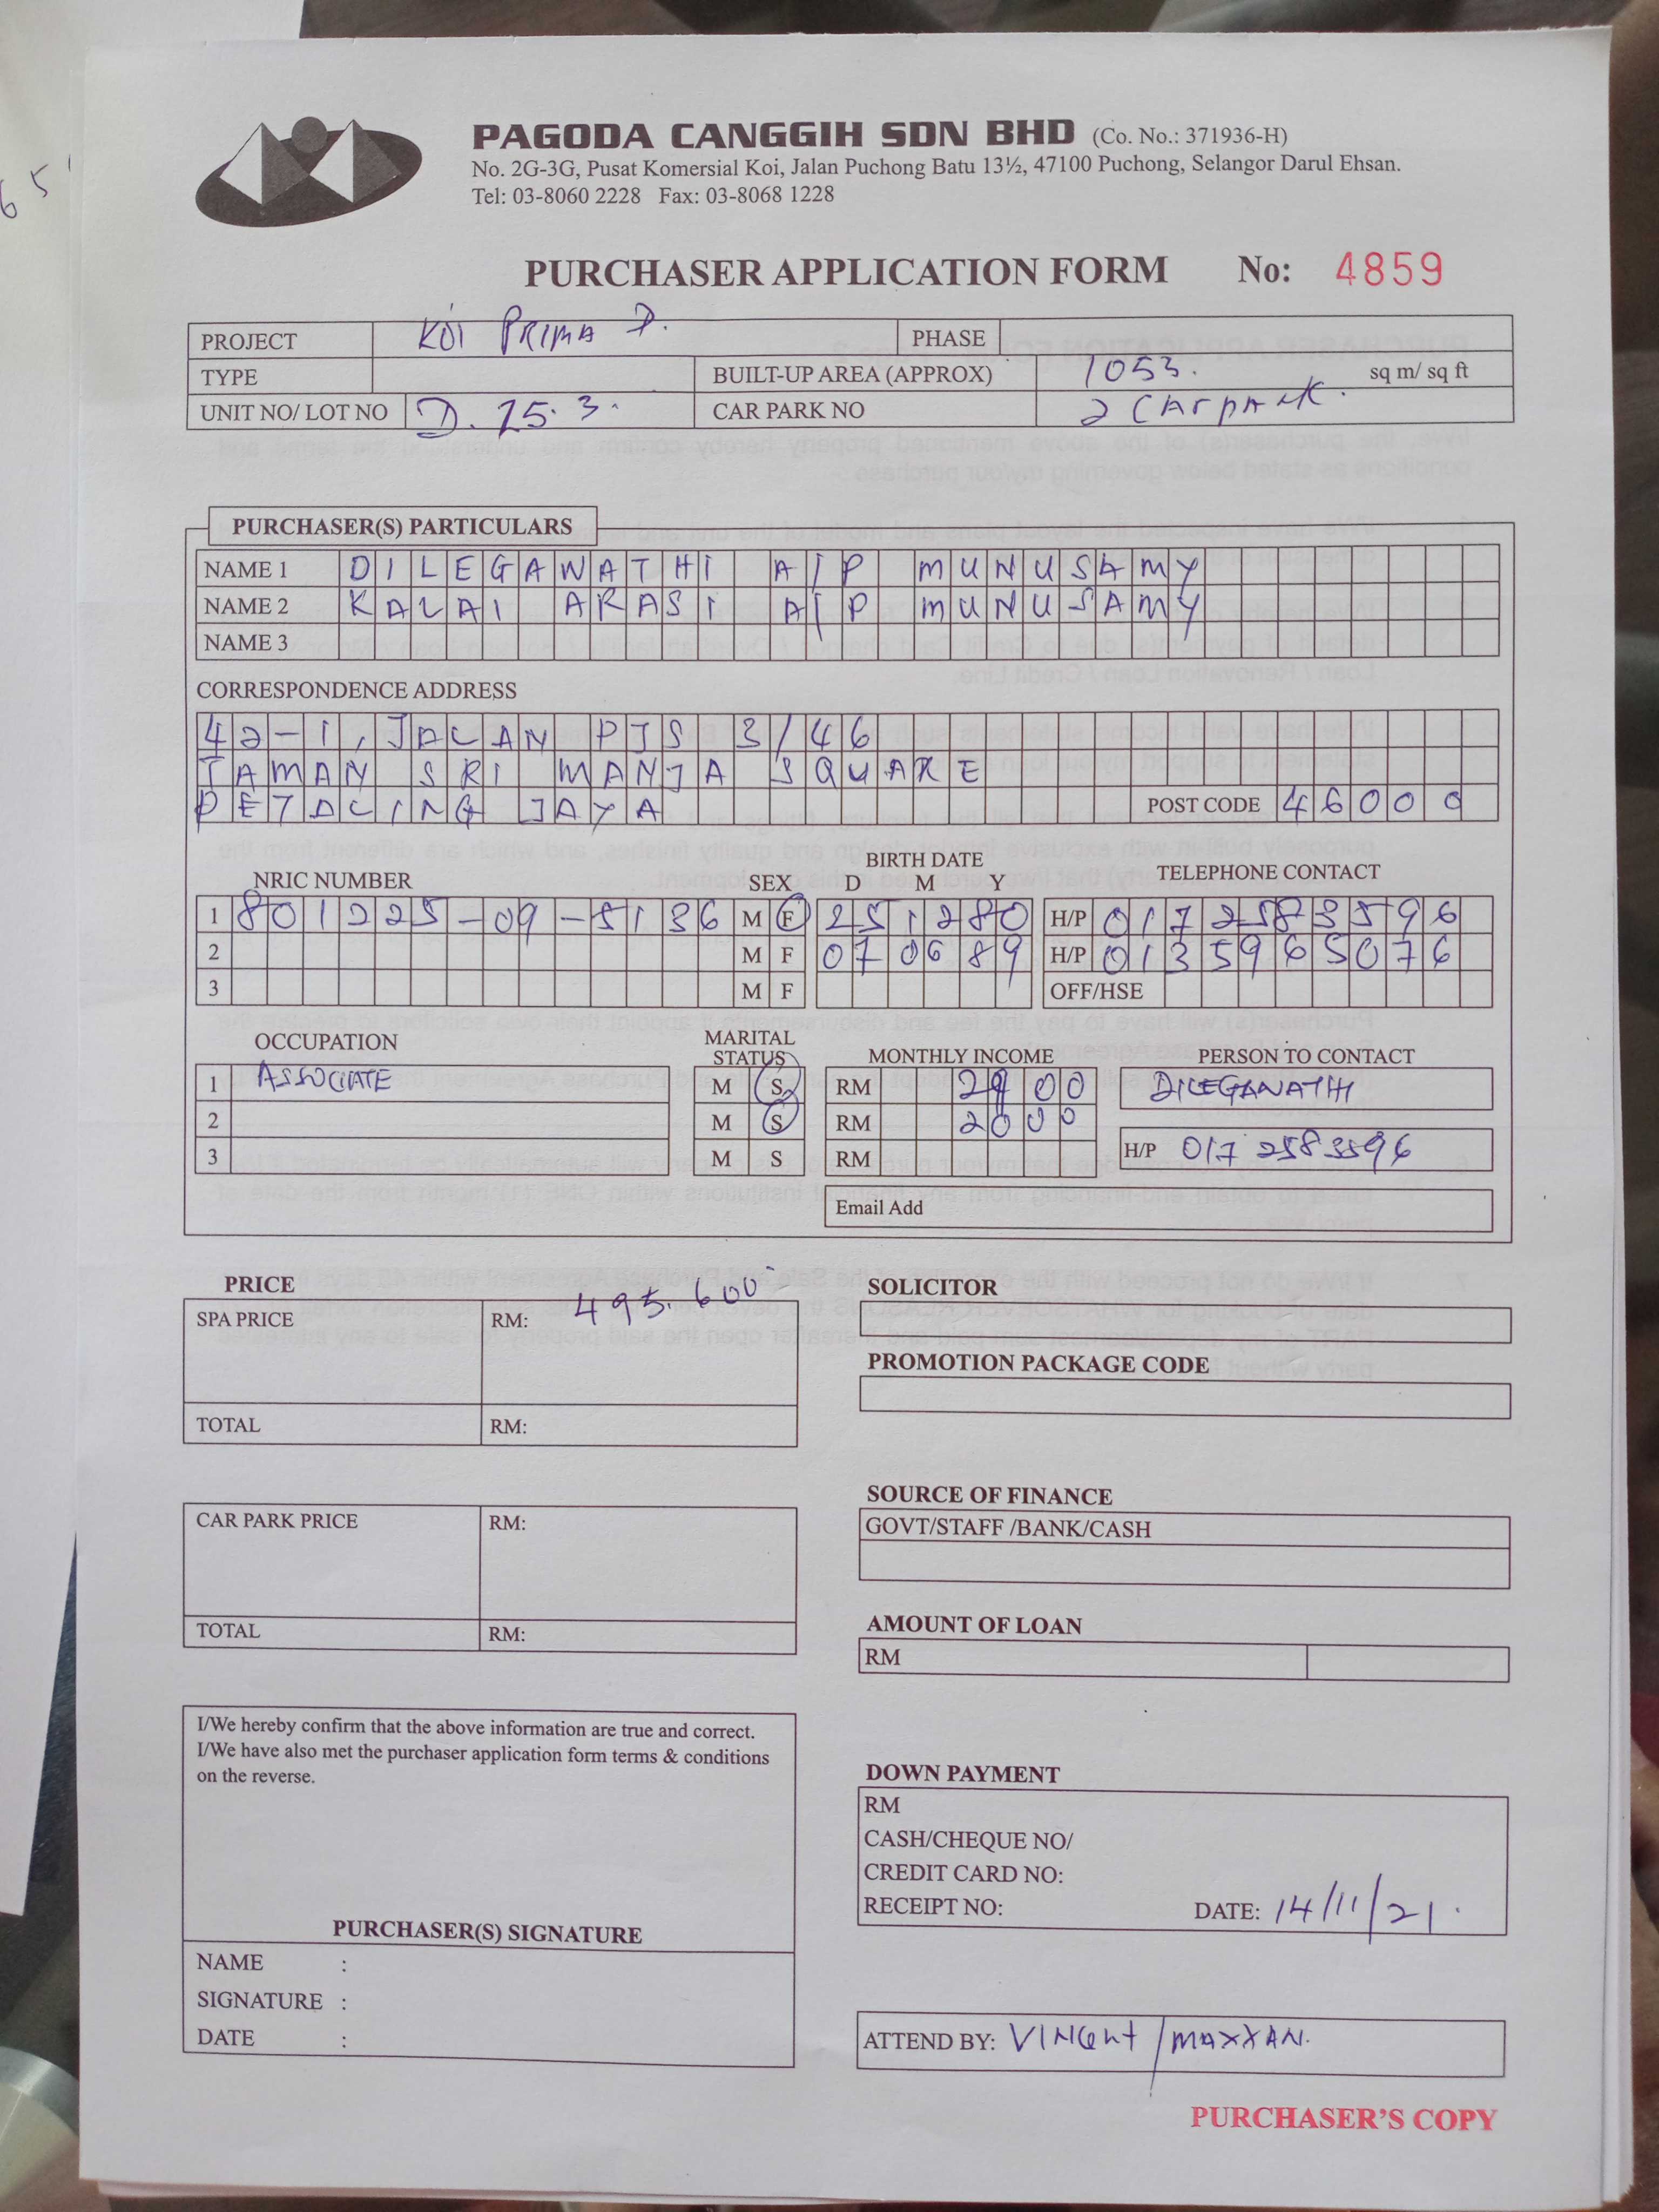 65
PAGODA CANGGIH SDN BHD (Co. No.: 371936-H)
No. 2G-3G, Pusat Komersial Koi, Jalan Puchong Batu 13½, 47100 Puchong, Selangor Darul Ehsan.
Tel: 03-8060 2228 Fax: 03-8068 1228
PURCHASER APPLICATION FORM No: 4859
PROJECT KOI PRIMA D. PHASE
TYPE BUILT-UP AREA (APPROX) 1053. sq m/ sq ft
UNIT NO/ LOT NO D. 25. 3. CAR PARK NO 2 CArpArk.
PURCHASER(S) PARTICULARS
NAME 1 DILEGAWATHI A/P MUNUSAMY
NAME 2 KALAI ARASI A/P MUNUSAMY
NAME 3
CORRESPONDENCE ADDRESS
42-1, JALAN PJS 3/46
TAMAN SRI MANJA SQUARE
PETALING JAYA POST CODE 46000
NRIC NUMBER SEX BIRTH DATE D M Y TELEPHONE CONTACT
1 801225-09-5136 M F 251280 H/P 0172583596
2 M F 070689 H/P 0135965076
3 M F OFF/HSE
OCCUPATION MARITAL STATUS MONTHLY INCOME PERSON TO CONTACT
1 ASSOCIATE M S RM 2900 DILEGAWATHI
2 M S RM 2000
3 M S RM H/P 017 2583596
Email Add
PRICE SOLICITOR
SPA PRICE RM: 495.600
PROMOTION PACKAGE CODE
TOTAL RM:
SOURCE OF FINANCE
CAR PARK PRICE RM: GOVT/STAFF /BANK/CASH
AMOUNT OF LOAN
TOTAL RM: RM
I/We hereby confirm that the above information are true and correct.
I/We have also met the purchaser application form terms & conditions
on the reverse.
DOWN PAYMENT
RM
CASH/CHEQUE NO/
CREDIT CARD NO:
RECEIPT NO: DATE: 14/11/21.
PURCHASER(S) SIGNATURE
NAME :
SIGNATURE :
DATE :
ATTEND BY: VINCent / MAXXAN.
PURCHASER'S COPY